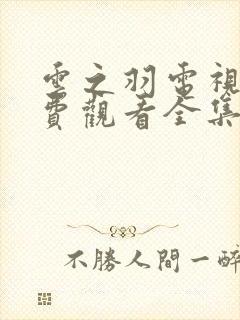 雲之羽電視
費觀看全集
不勝人間一醉